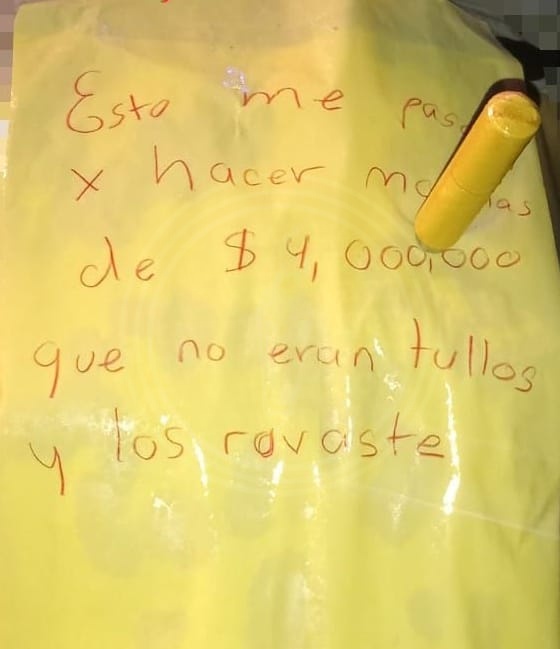 Esto me
x hacer
de $ 4, 000,000
que no eran tullos
y los rovaste